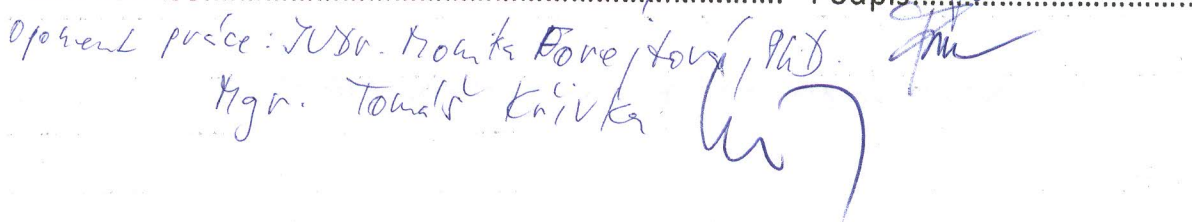 Podpis
Oponent práce: JUDr. Monika Forejtová, PhD.
Mgr. Tomáš Křivka